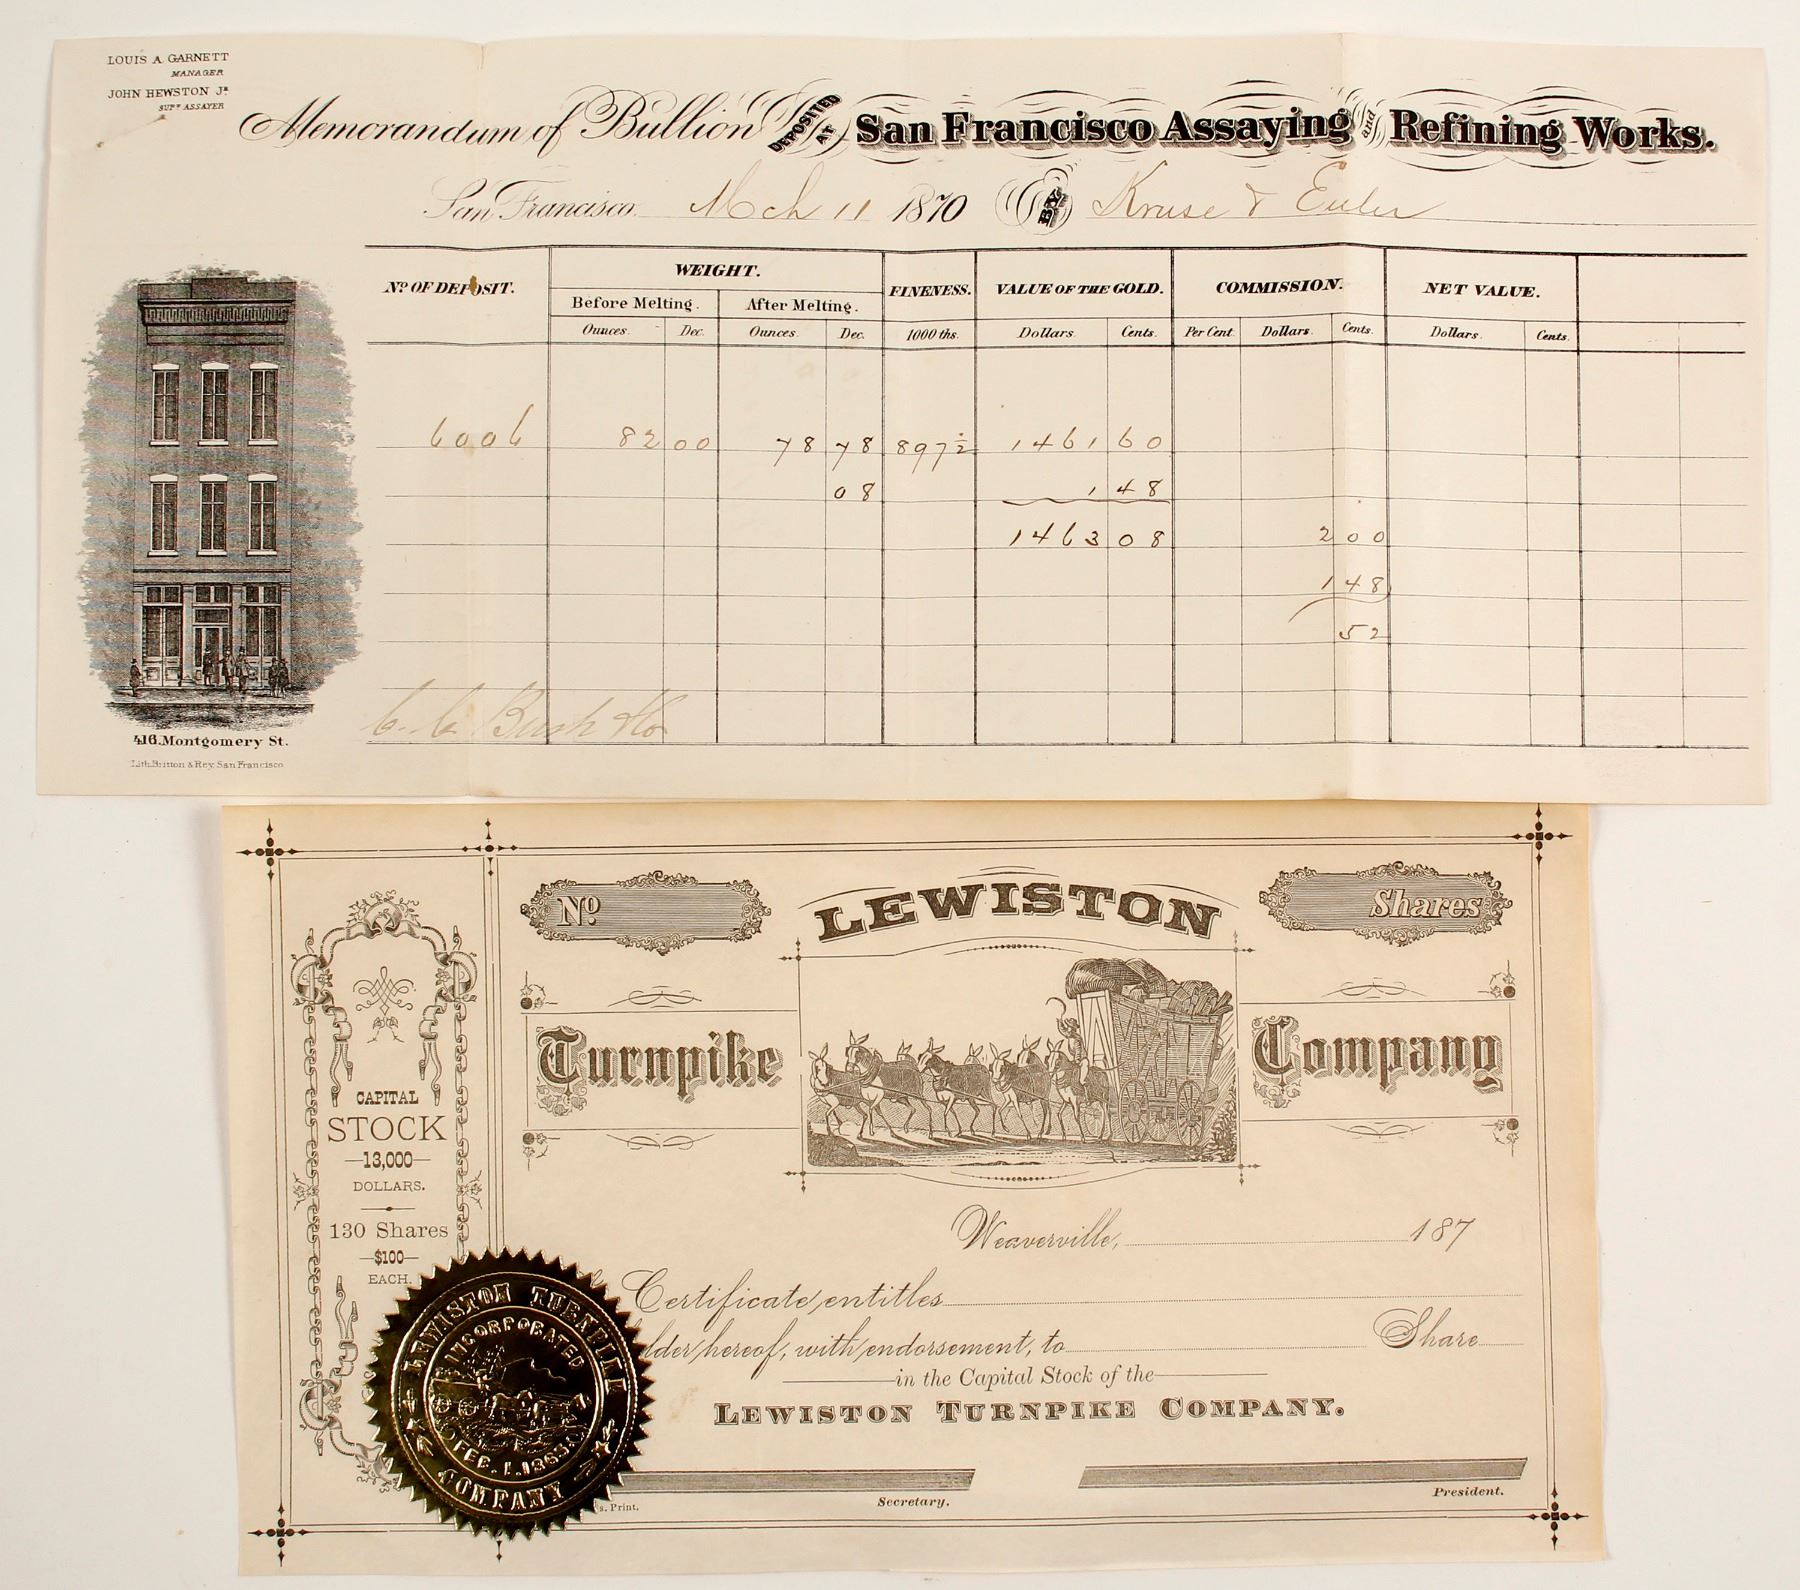 LOUIS A. GARNETT
MANAGER
JOHN HEWSTON Jr.
SUPt ASSAYER
Memorandum of Bullion DEPOSITED AT San Francisco Assaying and Refining Works.
San Francisco Mch 11 1870 BY Kruse & Euler
No. OF DEPOSIT. WEIGHT. FINENESS. VALUE OF THE GOLD. COMMISSION. NET VALUE.
Before Melting. After Melting.
Ounces. Dec. Ounces. Dec. 1000 ths. Dollars. Cents. Per Cent. Dollars. Cents. Dollars. Cents.
6006 82 00 78 78 897½ 1461 60
08 1 48
1463 08 2 00
1 48
52
C. C. Bush & Co
416. Montgomery St.
Lith. Britton & Rey. San Francisco
No. LEWISTON Shares
Turnpike Company
CAPITAL
STOCK
13,000
DOLLARS.
130 Shares
$100
EACH.
Weaverville, 187
Certificate entitles
lder hereof, with endorsement, to Share
in the Capital Stock of the
LEWISTON TURNPIKE COMPANY.
s. Print. Secretary. President.
LEWISTON TURNPIKE
INCORPORATED
FEB. 1. 1863.
COMPANY